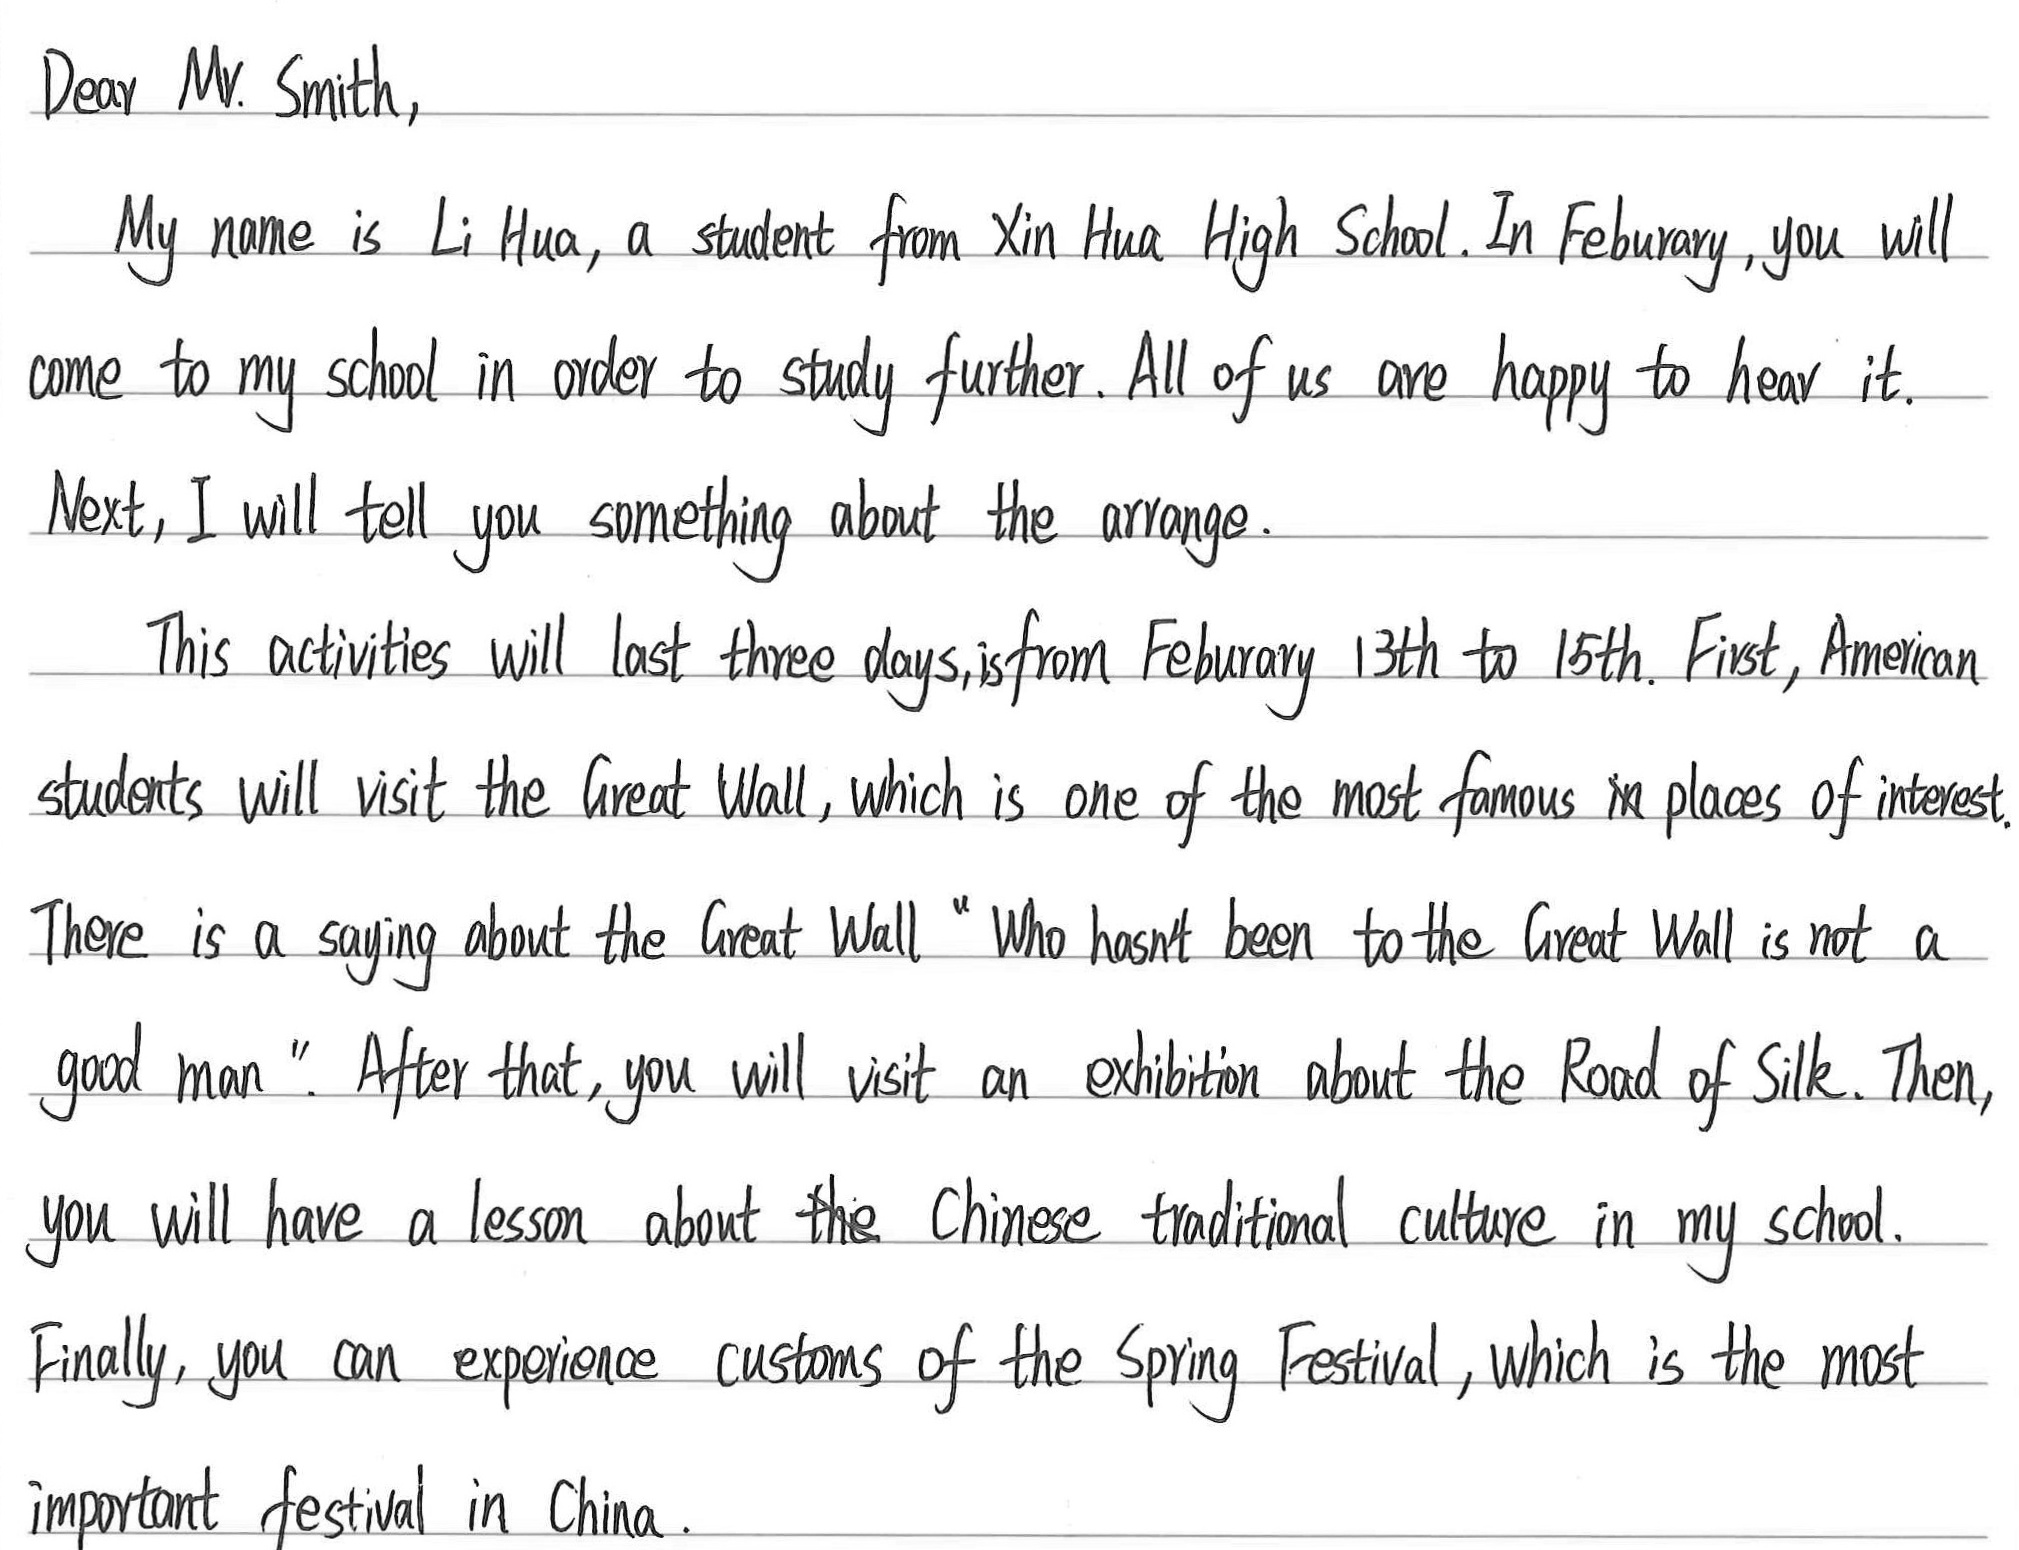 Dear Mr. Smith,
My name is Li Hua, a student from Xin Hua High School. In Feburary, you will
come to my school in order to study further. All of us are happy to hear it.
Next, I will tell you something about the arrange.
This activities will last three days, is from Feburary 13th to 15th. First, American
students will visit the Great Wall, which is one of the most famous places of interest.
There is a saying about the Great Wall "Who hasn't been to the Great Wall is not a
good man". After that, you will visit an exhibition about the Road of Silk. Then,
you will have a lesson about the Chinese traditional culture in my school.
Finally, you can experience customs of the Spring Festival, which is the most
important festival in China.